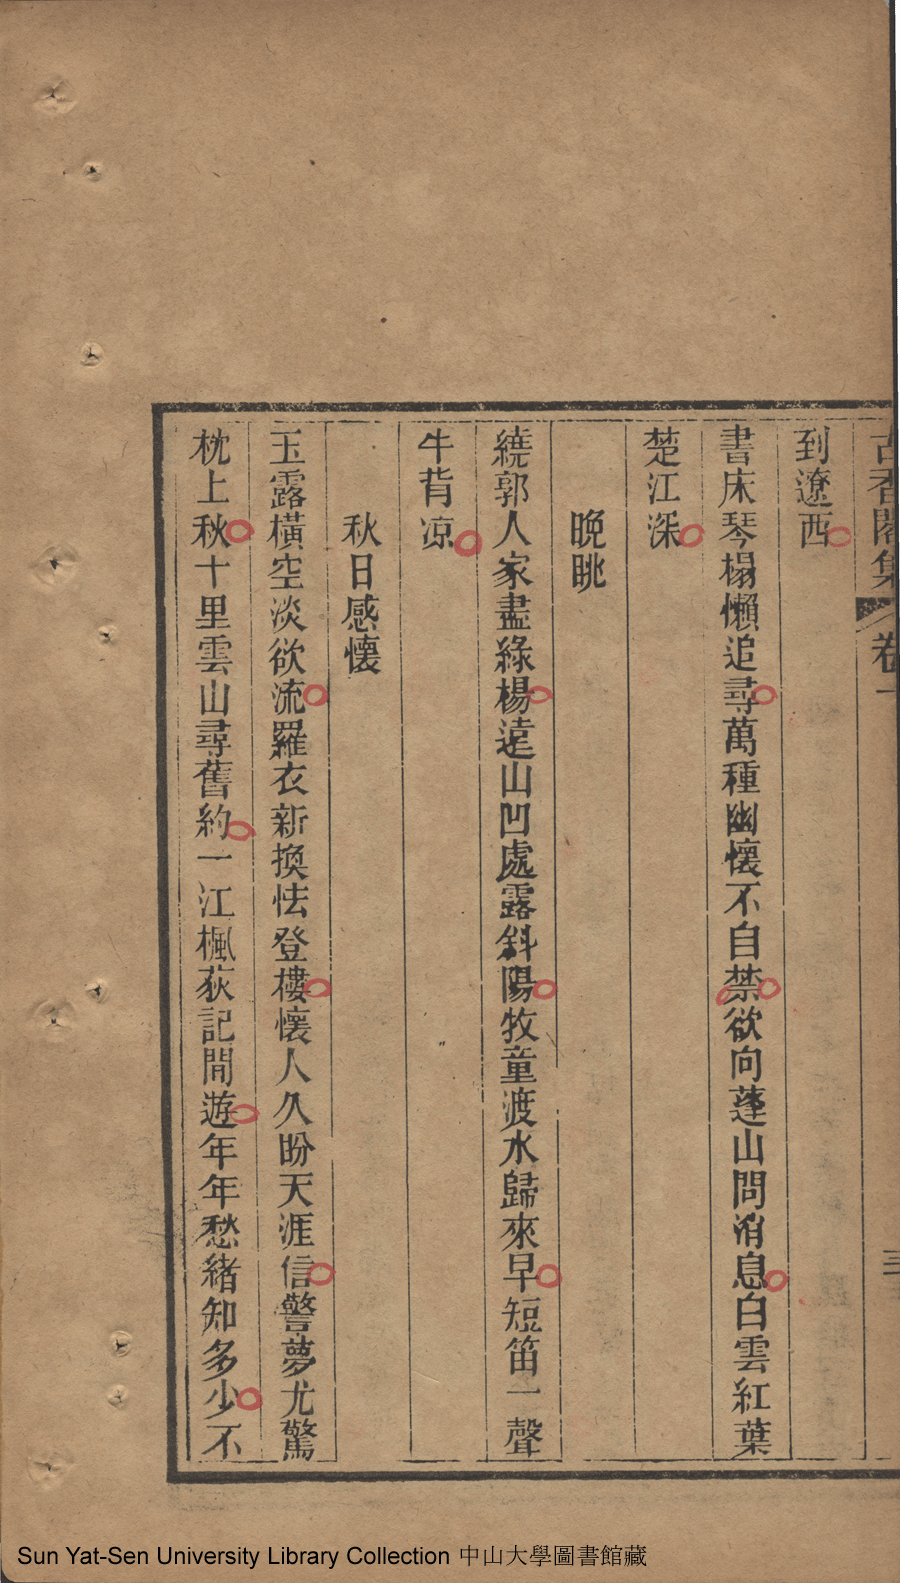 古香閣集 卷一
到遼西
書床琴榻懶追尋萬種幽懷不自禁欲向蓬山問消息白雲紅葉
楚江深
晚眺
繞郭人家盡綠楊遠山凹處露斜陽牧童渡水歸來早短笛一聲
牛背凉
秋日感懷
玉露橫空淡欲流羅衣新換怯登樓懷人久盼天涯信警夢尤驚
枕上秋十里雲山尋舊約一江楓荻記閒遊年年愁緒知多少不
Sun Yat-Sen University Library Collection 中山大學圖書館藏